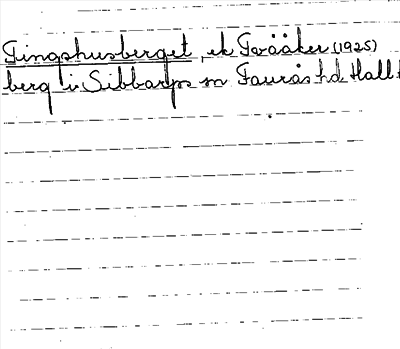 Tingshusberget, ek Tvååker (1925)
berg i Sibbarps sn Faurås hd Hall